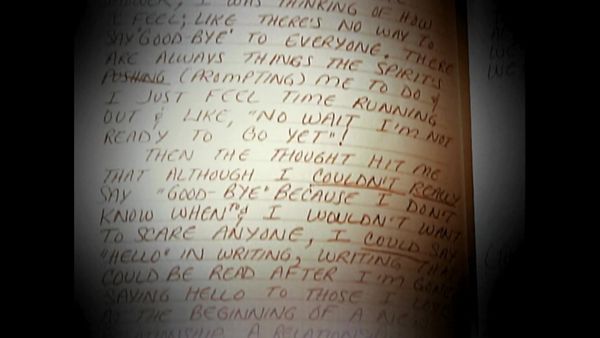 I WAS THINKING OF HOW
I FEEL; LIKE THERE'S NO WAY TO
SAY 'GOOD-BYE' TO EVERYONE. THERE
ARE ALWAYS THINGS THE SPIRITS
PUSHING (PROMPTING) ME TO DO &
I JUST FEEL TIME RUNNING
OUT & LIKE, "NO WAIT I'M NOT
READY TO GO YET"!
THEN THE THOUGHT HIT ME
THAT ALTHOUGH I COULDN'T REALLY
SAY "GOOD-BYE" BECAUSE I DON'T
KNOW WHEN & I WOULDN'T WANT
TO SCARE ANYONE, I COULD SAY
"HELLO" IN WRITING, WRITING THAT
COULD BE READ AFTER I'M GONE
SAYING HELLO TO THOSE I LOVE
AT THE BEGINNING OF A NEW
RELATIONSHIP. A
WE
WE